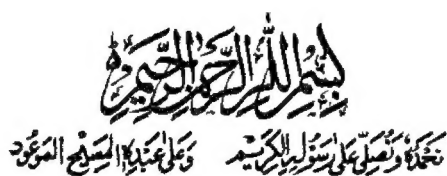 بِسْمِ اللّٰهِ الرَّحْمٰنِ الرَّحِيْمِ
نَحْمَدُهٗ وَنُصَلِّيْ عَلٰى رَسُوْلِهِ الْكَرِيْمِ وَعَلٰى عَبْدِهِ الْمَسِيْحِ الْمَوْعُوْدِ